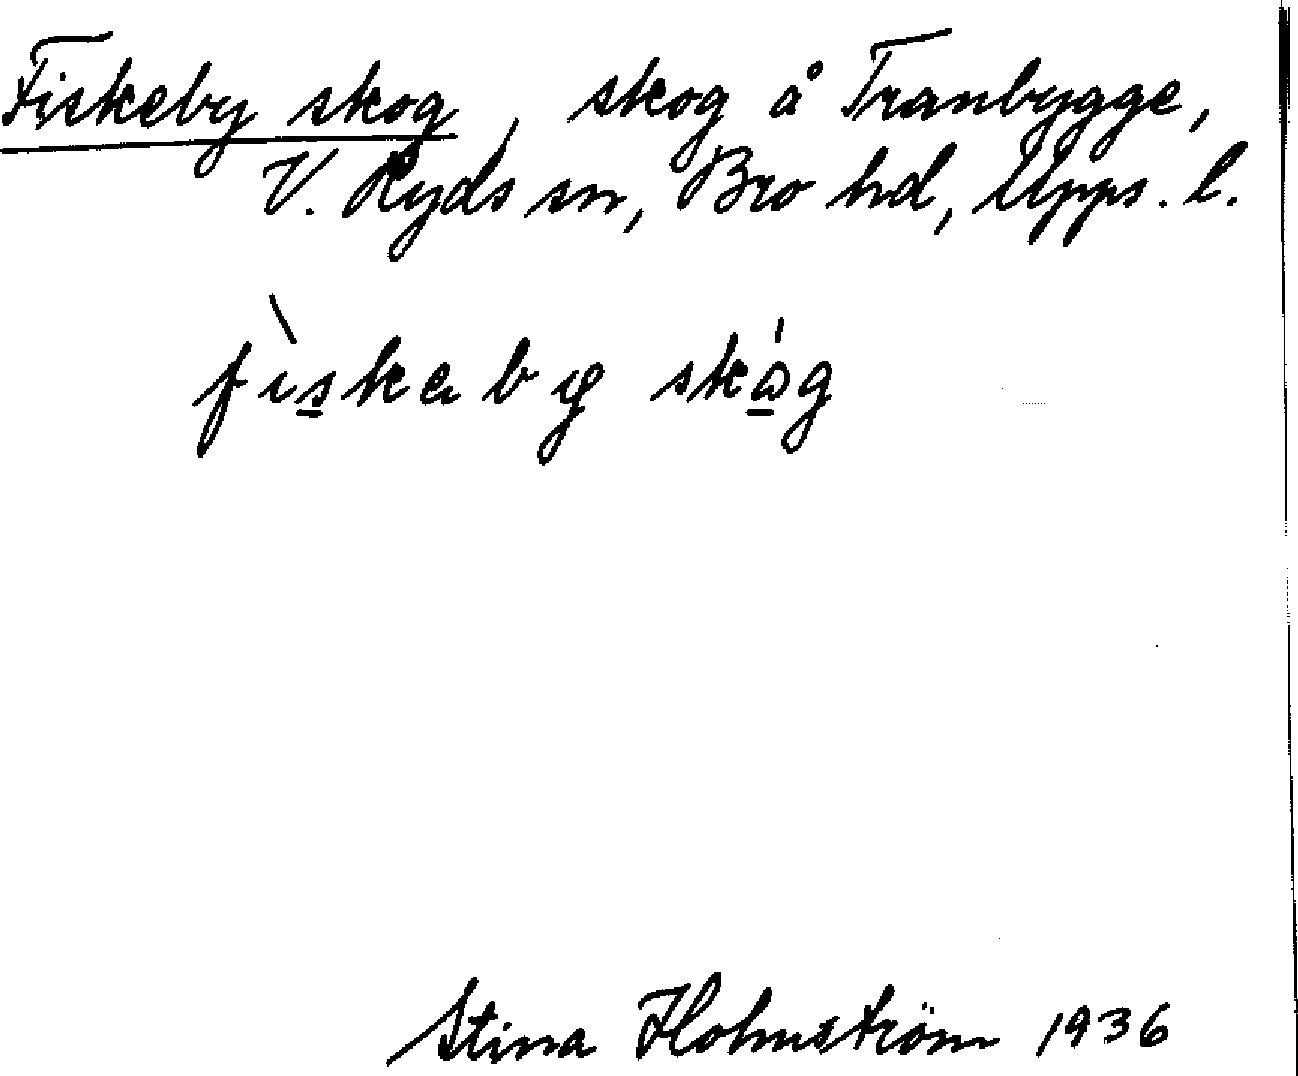 Fiskeby skog, skog å Tranbygge,
V. Ryds sn, Bro hd, Upps. l.
fìs̲kaby skó̲g
Stina Holmström 1936